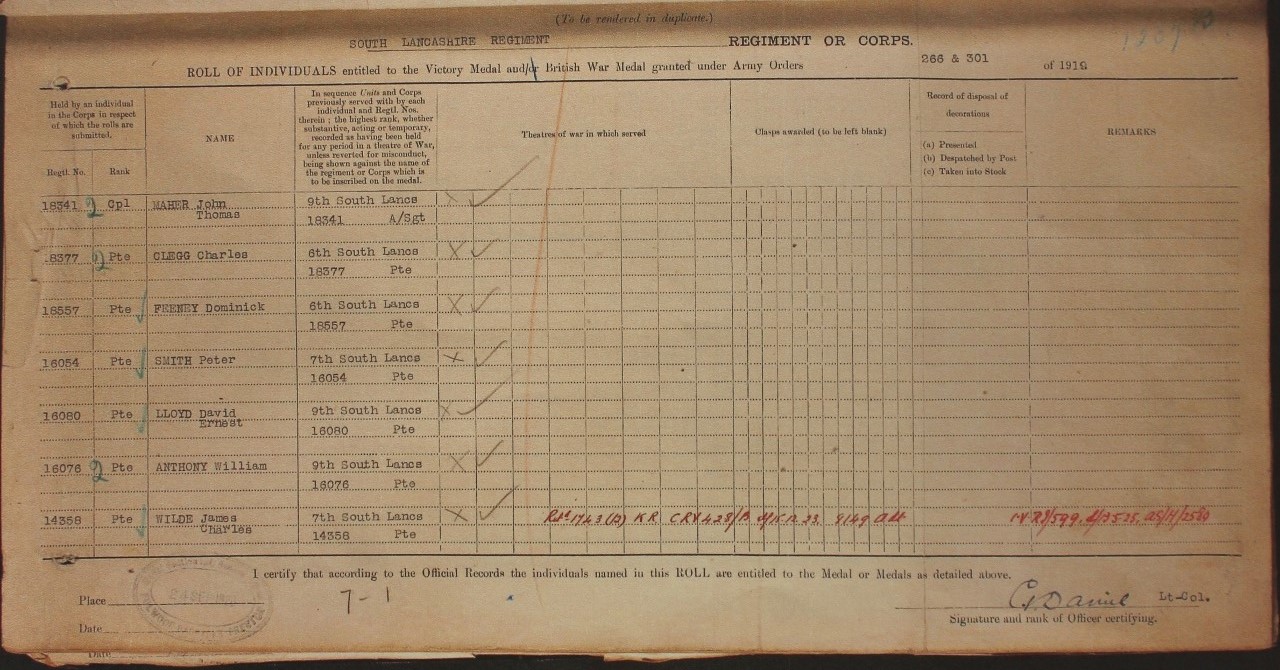 (To be rendered in duplicate.)
SOUTH LANCASHIRE REGIMENT REGIMENT OR CORPS.
ROLL OF INDIVIDUALS entitled to the Victory Medal and/or British War Medal granted under Army Orders 266 & 301 of 1919
Held by an individual
in the Corps in respect
of which the rolls are
submitted.
Regtl. No.
Rank
NAME
In sequence Units and Corps
previously served with by each
individual and Regtl. Nos.
therein ; the highest rank, whether
substantive, acting or temporary,
recorded as having been held
for any period in a theatre of War,
unless reverted for misconduct,
being shown against the name of
the regiment or Corps which is
to be inscribed on the medal.
Theatres of war in which served
Clasps awarded (to be left blank)
Record of disposal of
decorations
(a) Presented
(b) Despatched by Post
(c) Taken into Stock
REMARKS
18341 2 Cpl MAHER John 9th South Lancs X ✓
Thomas 18341 A/Sgt
18377 2 Pte CLEGG Charles 6th South Lancs X ✓
18377 Pte
18557 Pte ✓ FEENEY Dominick 6th South Lancs X ✓
18557 Pte
16054 Pte ✓ SMITH Peter 7th South Lancs X ✓
16054 Pte
16080 Pte ✓ LLOYD David 9th South Lancs X ✓
Ernest 16080 Pte
16076 2 Pte ANTHONY William 9th South Lancs X ✓
16076 Pte
14358 Pte ✓ WILDE James 7th South Lancs X ✓ 1743 KR
Charles 14358 Pte
I certify that according to the Official Records the individuals named in this ROLL are entitled to the Medal or Medals as detailed above.
Place
7-1
G. Daniel Lt-Col.
Signature and rank of Officer certifying.
Date
Date